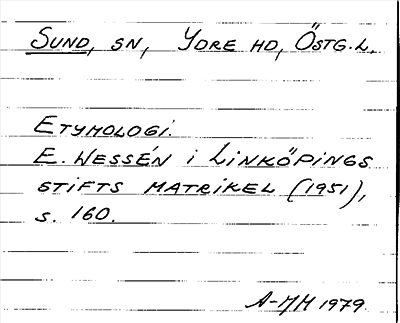 SUND, SN, YDRE HD, ÖSTG.L.
ETYMOLOGI.
E. WESSÉN i LINKÖPINGS
STIFTS MATRIKEL (1951),
S. 160.
A-MH 1979